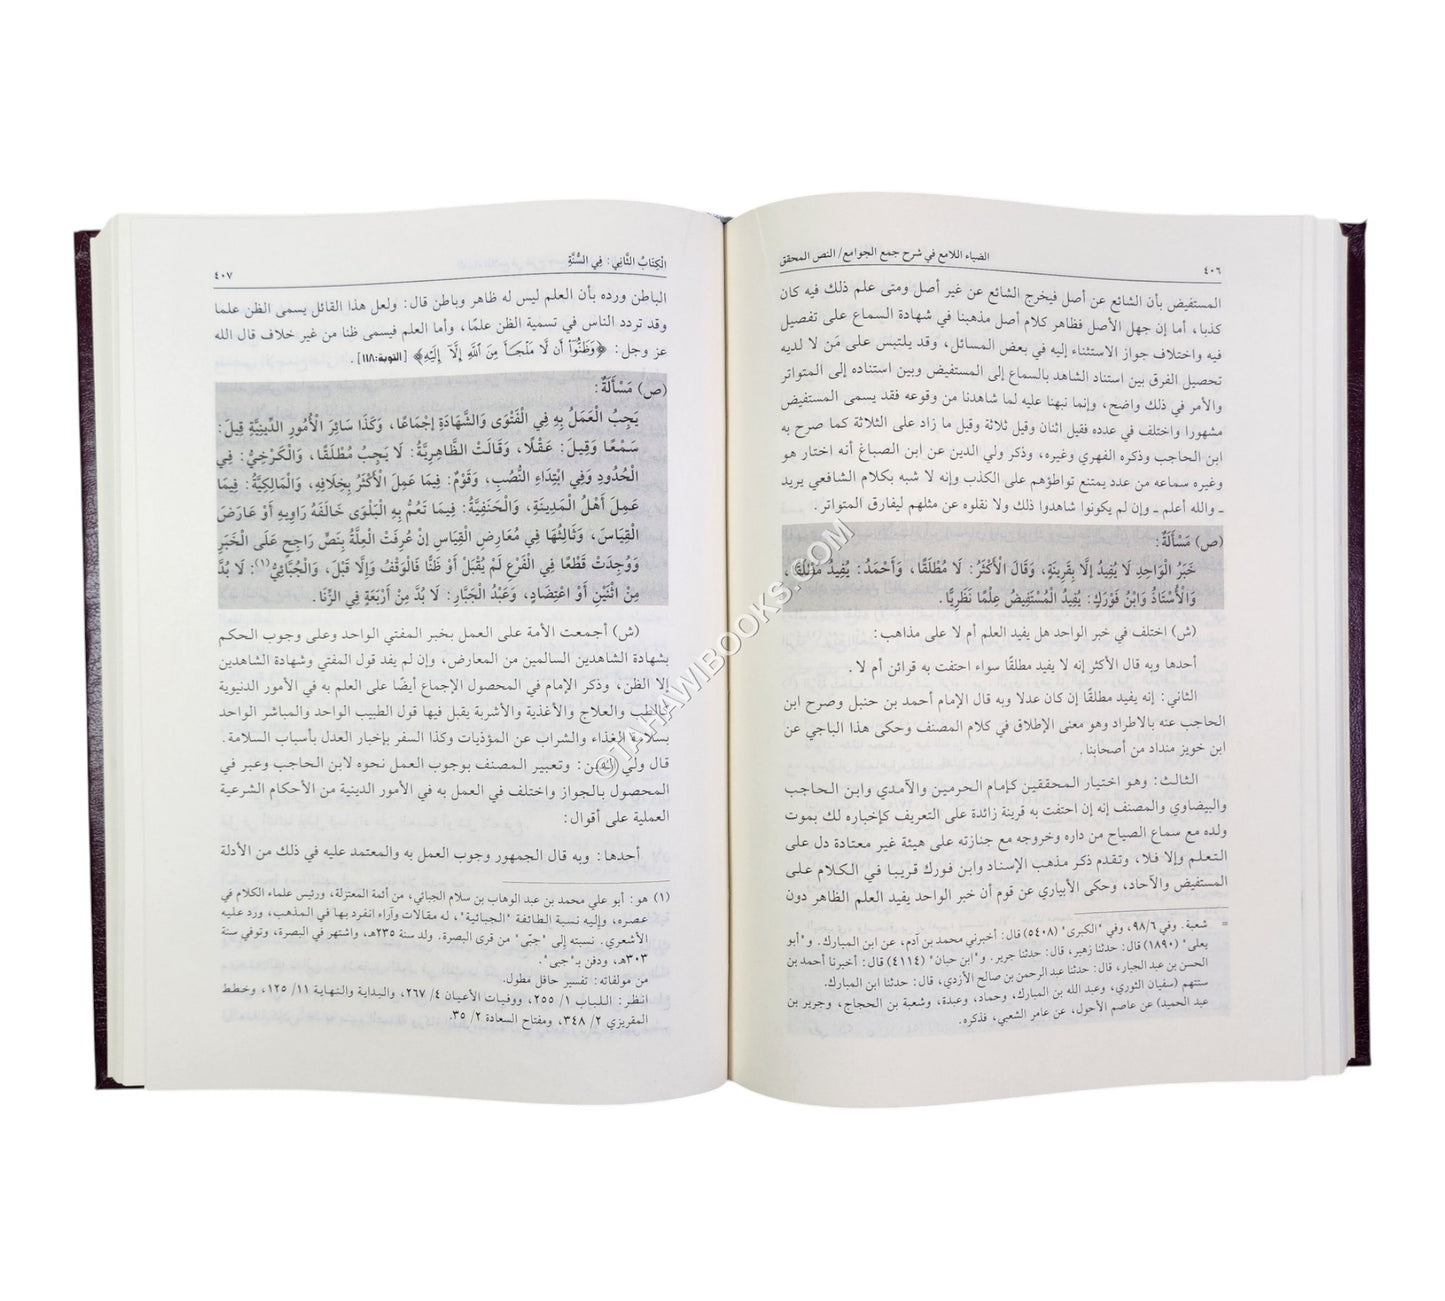 الضياء اللامع في شرح جمع الجوامع/ النص المحقق
٤٠٦
المستفيض بأن الشائع عن أصل فيخرج الشائع عن غير أصل ومتى علم ذلك فيه كان
كذبا، أما إن جهل الأصل فظاهر كلام أصل مذهبنا في شهادة السماع على تفصيل
فيه واختلاف جواز الاستثناء إليه في بعض المسائل، وقد يلتبس على مَن لا لديه
تحصيل الفرق بين استناد الشاهد بالسماع إلى المستفيض وبين استناده إلى المتواتر
والأمر في ذلك واضح، وإنما نبهنا عليه لما شاهدنا من وقوعه فقد يسمى المستفيض
مشهورا واختلف في عدده فقيل اثنان وقيل ثلاثة وقيل ما زاد على الثلاثة كما صرح به
ابن الحاجب وذكره الفهري وغيره، وذكر ولي الدين عن ابن الصباغ أنه اختار هو
وغيره سماعه من عدد يمتنع تواطؤهم على الكذب وإنه لا شبه بكلام الشافعي يريد
ـ والله أعلم ـ وإن لم يكونوا شاهدوا ذلك ولا نقلوه عن مثلهم ليفارق المتواتر.
(ص) مَسْأَلَةٌ:
خَبَرُ الْوَاحِدِ لَا يُفِيدُ إلَّا بِقَرِينَةٍ، وَقَالَ الْأَكْثَرُ: لَا مُطْلَقًا، وَأَحْمَدُ: يُفِيدُ مُطْلَقًا،
وَالْأُسْتَاذُ وَابْنُ فَوْرَكٍ: يُفِيدُ الْمُسْتَفِيضُ عِلْمًا نَظَرِيًّا.
(ش) اختلف في خبر الواحد هل يفيد العلم أم لا على مذاهب:
أحدها وبه قال الأكثر إنه لا يفيد مطلقًا سواء احتفت به قرائن أم لا.
الثاني: إنه يفيد مطلقًا إن كان عدلا وبه قال الإمام أحمد بن حنبل وصرح ابن
الحاجب عنه بالاطراد وهو معنى الإطلاق في كلام المصنف وحكى هذا الباجي عن
ابن خويز منداد من أصحابنا.
الثالث: وهو اختيار المحققين كإمام الحرمين والآمدي وابن الحاجب
والبيضاوي والمصنف إنه إن احتفت به قرينة زائدة على التعريف كإخباره لك بموت
ولده مع سماع الصياح من داره وخروجه مع جنازته على هيئة غير معتادة دل على
التعلم وإلا فلا، وتقدم ذكر مذهب الإسناد وابن فورك قريبا في الكلام على
المستفيض والآحاد، وحكى الأبياري عن قوم أن خبر الواحد يفيد العلم الظاهر دون
= شعبة. وفي ٩٨/٦، وفي "الكبرى" (٥٤٠٨) قال: أخبرني محمد بن آدم، عن ابن المبارك. و"أبو
يعلى" (١٨٩٠) قال: حدثنا زهير، قال: حدثنا جرير. و"ابن حبان" (٤١١٤) قال: أخبرنا أحمد بن
الحسن بن عبد الجبار، قال: حدثنا عبد الرحمن بن صالح الأزدي، قال: حدثنا ابن المبارك.
ستتهم (سفيان الثوري، وعبد الله بن المبارك، وحماد، وعبدة، وشعبة بن الحجاج، وجرير بن
عبد الحميد) عن عاصم الأحول، عن عامر الشعبي، فذكره.
الْكِتَابُ الثَّانِي: فِي السُّنَّةِ
٤٠٧
الباطن ورده بأن العلم ليس له ظاهر وباطن قال: ولعل هذا القائل يسمى الظن علما
وقد تردد الناس في تسمية الظن علمًا، وأما العلم فيسمى ظنا من غير خلاف قال الله
عز وجل: ﴿وَظَنُّوٓا۟ أَن لَّا مَلْجَأَ مِنَ ٱللَّهِ إِلَّآ إِلَيْهِ﴾ [التوبة:١١٨].
(ص) مَسْأَلَةٌ:
يَجِبُ الْعَمَلُ بِهِ فِي الْفَتْوَى وَالشَّهَادَةِ إجْمَاعًا، وَكَذَا سَائِرَ الْأُمُورِ الدِّينِيَّةِ قِيلَ:
سَمْعًا وَقِيلَ: عَقْلًا، وَقَالَتْ الظَّاهِرِيَّةُ: لَا يَجِبُ مُطْلَقًا، وَالْكَرْخِيُّ: فِي
الْحُدُودِ وَفِي ابْتِدَاءِ النُّصُبِ، وَقَوْمٌ: فِيمَا عَمِلَ الْأَكْثَرُ بِخِلَافِهِ، وَالْمَالِكِيَّةُ: فِيمَا
عَمِلَ أَهْلُ الْمَدِينَةِ، وَالْحَنَفِيَّةُ: فِيمَا تَعُمُّ بِهِ الْبَلْوَى خَالَفَهُ رَاوِيهِ أَوْ عَارَضَ
الْقِيَاسَ، وَثَالِثُهَا فِي مُعَارِضِ الْقِيَاسِ إنْ عُرِفَتْ الْعِلَّةُ بِنَصٍّ رَاجِحٍ عَلَى الْخَبَرِ
وَوُجِدَتْ قَطْعًا فِي الْفَرْعِ لَمْ يُقْبَلْ أَوْ ظَنًّا فَالْوَقْفُ وَإِلَّا قَبْلَ، وَالْجُبَّائِيُّ(١): لَا بُدَّ
مِنْ اثْنَيْنِ أَوْ اعْتِضَادٍ، وَعَبْدُ الْجَبَّارِ: لَا بُدَّ مِنْ أَرْبَعَةٍ فِي الزِّنَا.
(ش) أجمعت الأمة على العمل بخبر المفتي الواحد وعلى وجوب الحكم
بشهادة الشاهدين السالمين من المعارض، وإن لم يفد قول المفتي وشهادة الشاهدين
إلا الظن، وذكر الإمام في المحصول الإجماع أيضًا على العلم به في الأمور الدنيوية
كالطب والعلاج والأغذية والأشربة يقبل فيها قول الطبيب الواحد والمباشر الواحد
بسلامة الغذاء والشراب عن المؤذيات وكذا السفر بإخبار العدل بأسباب السلامة.
قال ولي الدين: وتعبير المصنف بوجوب العمل نحوه لابن الحاجب وعبر في
المحصول بالجواز واختلف في العمل به في الأمور الدينية من الأحكام الشرعية
العملية على أقوال:
أحدها: وبه قال الجمهور وجوب العمل به والمعتمد عليه في ذلك من الأدلة
(١) هو: أبو علي محمد بن عبد الوهاب بن سلام الجبائي، من أئمة المعتزلة، ورئيس علماء الكلام في
عصره، وإليه نسبة الطائفة "الجبائية"، له مقالات وآراء انفرد بها في المذهب، ورد عليه
الأشعري. نسبته إلى "جبّى" من قرى البصرة. ولد سنة ٢٣٥هـ، واشتهر في البصرة، وتوفي سنة
٣٠٣هـ، ودفن بـ"جبى".
من مؤلفاته: تفسير حافل مطول.
انظر: اللباب ١/ ٢٥٥، ووفيات الأعيان ٤/ ٢٦٧، والبداية والنهاية ١١/ ١٢٥، وخطط
المقريزي ٢/ ٣٤٨، ومفتاح السعادة ٢/ ٣٥.
©TAHAWIBOOKS.COM